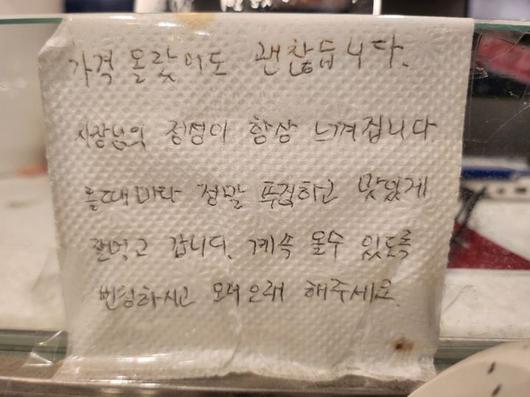 가격 올랐어도 괜찮듭니다.
사장님의 정성이 항상 느껴집니다
올때마다 정말 푸짐하고 맛있게
잘먹고 갑니다. 계속 올수 있도록
번창하시고 오래오래 해주세요.